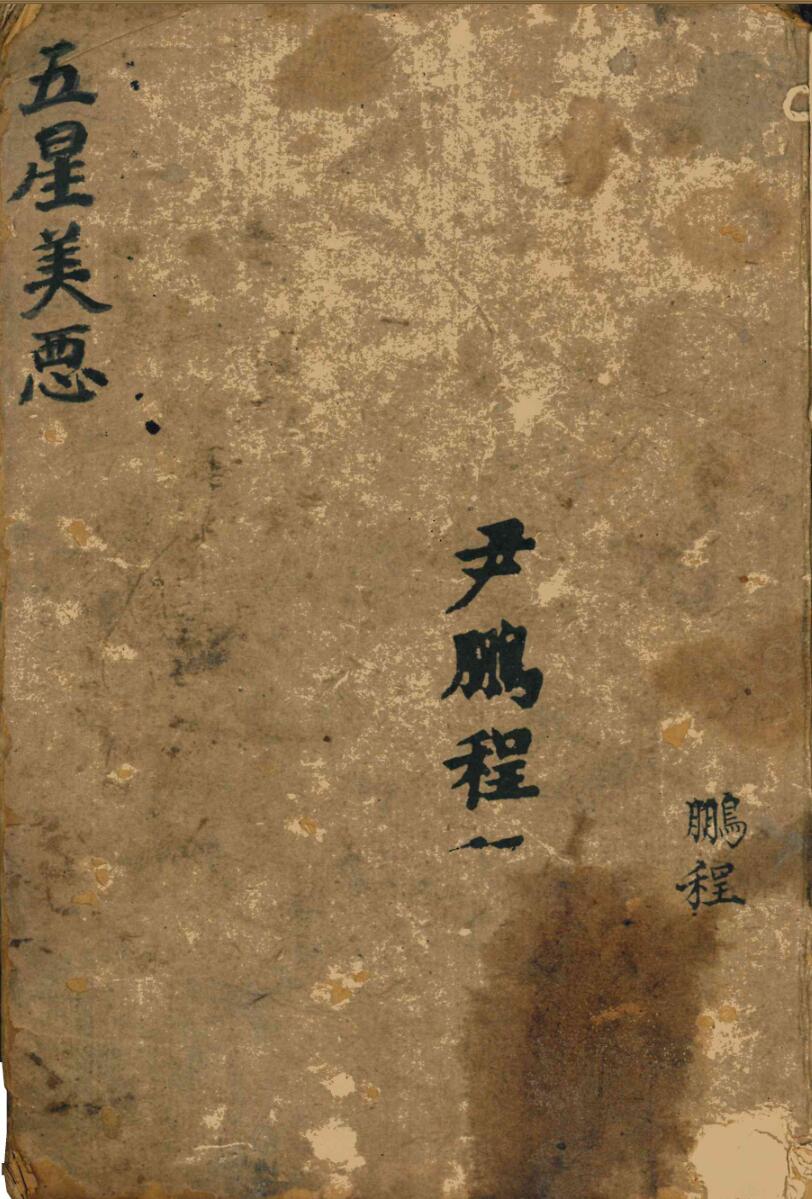 鵬程
尹鵬程一
五星美恶